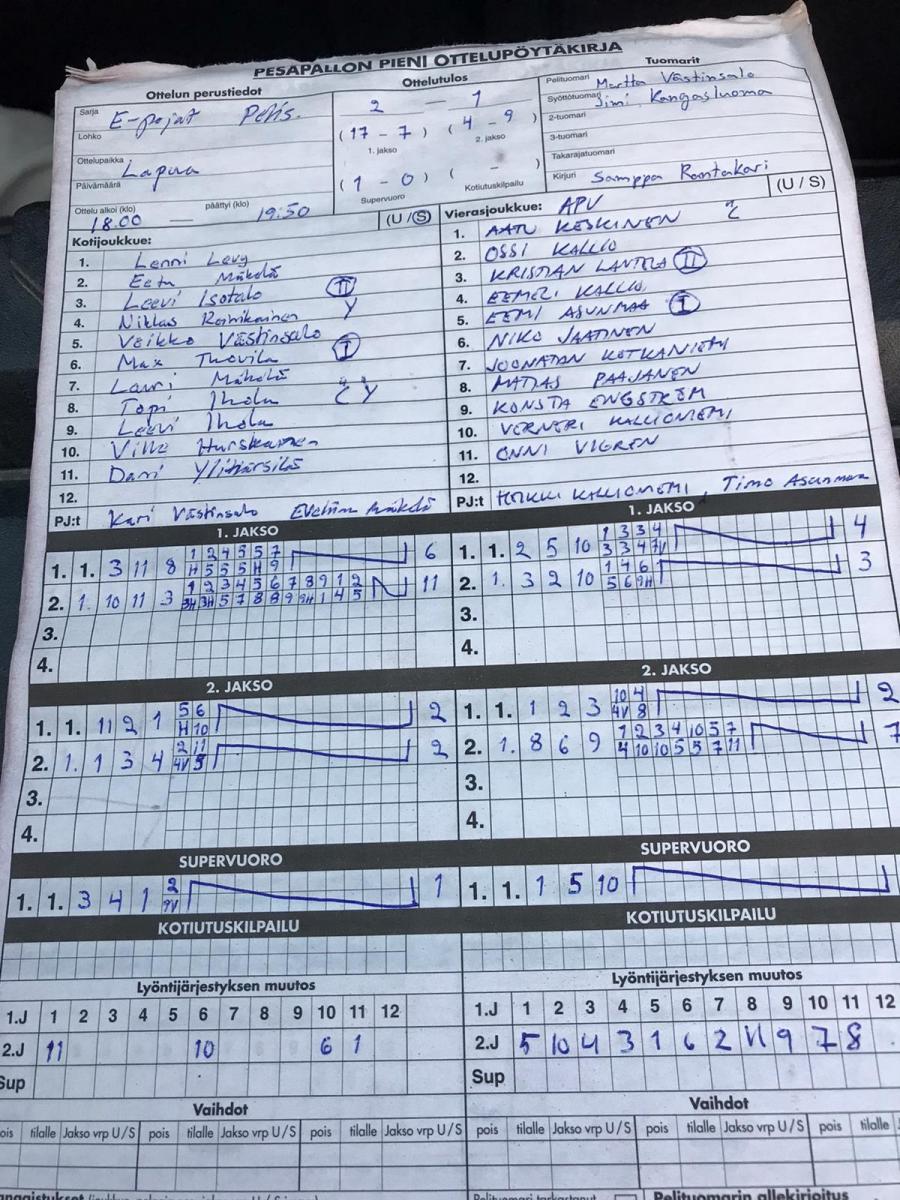 PESÄPALLON PIENI OTTELUPÖYTÄKIRJA
Ottelun perustiedot
Sarja E-pojat
Lohko
Ottelupaikka Lapua
Päivämäärä
Ottelu alkoi (klo) päättyi (klo)
18.00 — 19:50
Ottelutulos
2 — 1
(17 - 7) (4 - 9)
1. jakso 2. jakso
(1 - 0) ( - )
Supervuoro Kotiutuskilpailu
Tuomarit
Pelituomari Martta Västinsalo
Syöttötuomari Jimi Kangasluoma
2-tuomari
3-tuomari
Takarajatuomari
Kirjuri Samppa Rantakari
Kotijoukkue: (U / S)
1. Lenni Levy
2. Eetu Mäkelä
3. Leevi Isotalo II
4. Niklas Roinikainen Y
5. Veikko Västinsalo
6. Max Thovila I
7. Lauri Mäkelä
8. Topi Ihola Y
9. Leevi Ihola
10. Ville Hurskainen
11. Dani Ylihärsilä
12.
PJ:t Kari Västinsalo Eveliina Mäkelä
Vierasjoukkue: APV (U / S)
1. AATU KESKINEN
2. OSSI KALLIO
3. KRISTIAN LANTELA II
4. EEMELI KALLIO
5. EEMI ASUNMAA I
6. NIKO JAATINEN
7. JOONATAN KOTKANIEMI
8. MATIAS PAAJANEN
9. KONSTA ENGSTRÖM
10. VERNERI KALLIONIEMI
11. ONNI VIGREN
12.
PJ:t HEIKKI KALLIONIEMI Timo Asunmaa
1. JAKSO
1. 1. 3 11 8 1 2 4 5 5 7 6
H 5 5 5 H 9
2. 1. 10 11 3 1 2 3 4 5 6 7 8 9 1 2 11
3H 3H 5 7 8 8 9 9H 1 4 5
3.
4.
1. JAKSO
1. 1. 2 5 10 1 3 3 4 4
3 3 4 7V
2. 1. 3 2 10 1 4 6 3
5 6 9H
3.
4.
2. JAKSO
1. 1. 11 2 1 5 6 2
H 10
2. 1. 1 3 4 2 11 2
4V 5
3.
4.
2. JAKSO
1. 1. 1 2 3 10 4 2
4V 8
2. 1. 8 6 9 1 2 3 4 10 5 7 7
4 10 10 5 5 7 11
3.
4.
SUPERVUORO
1. 1. 3 4 1 2 1
9V
SUPERVUORO
1. 1. 1 5 10
KOTIUTUSKILPAILU
KOTIUTUSKILPAILU
Lyöntijärjestyksen muutos
1.J 1 2 3 4 5 6 7 8 9 10 11 12
2.J 11 10 6 1
Sup
Lyöntijärjestyksen muutos
1.J 1 2 3 4 5 6 7 8 9 10 11 12
2.J 5 10 4 3 1 6 2 11 9 7 8
Sup
Vaihdot
pois tilalle Jakso vrp U / S pois tilalle Jakso vrp U / S pois tilalle Jakso vrp U / S
Vaihdot
pois tilalle Jakso vrp U / S pois tilalle Jakso vrp U / S pois tilalle
Pelituomari tarkastanut
Pelituomarin allekirjoitus